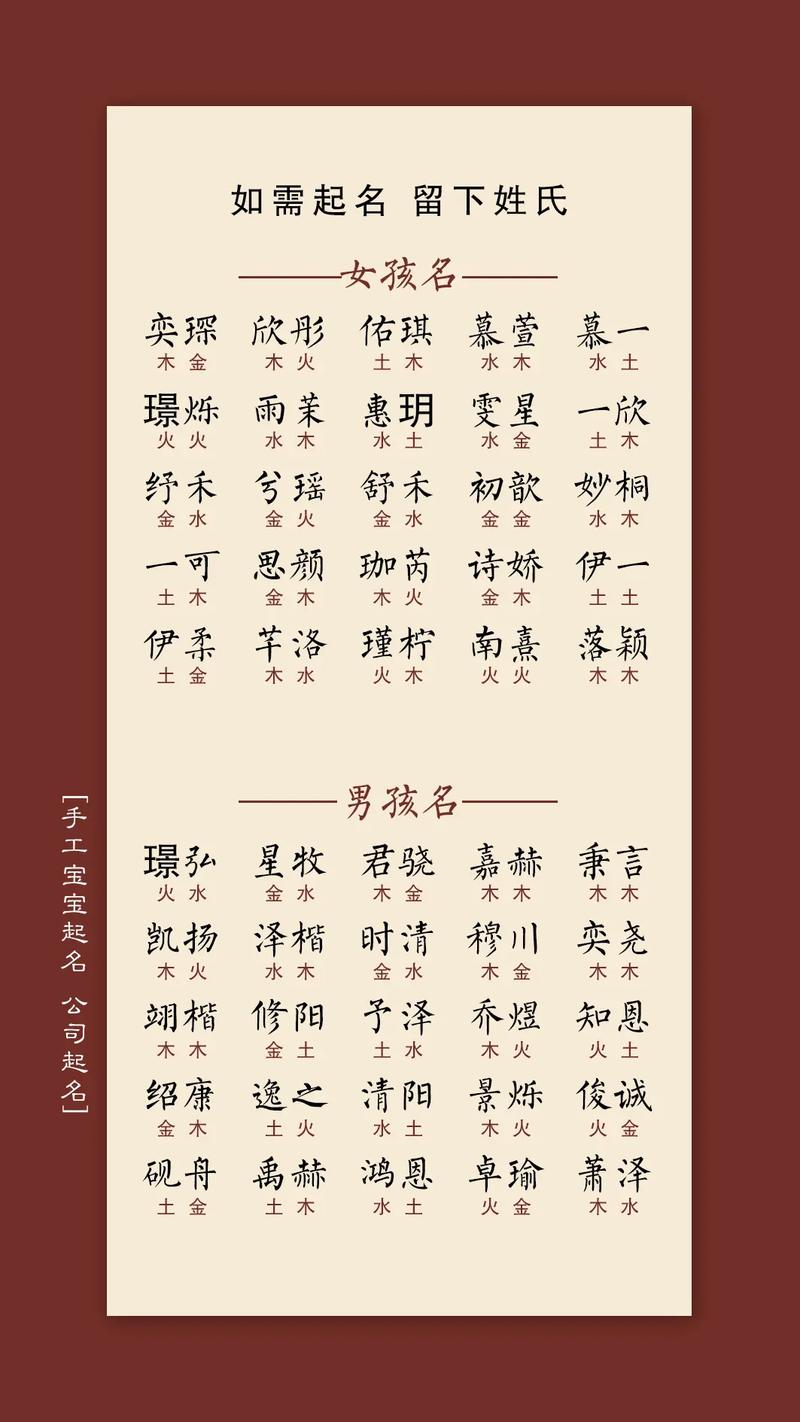 如需起名 留下姓氏
女孩名
奕琛 欣彤 佑琪 慕萱 慕一
木金 木火 土木 水木 水土
璟烁 雨茉 惠玥 雯星 一欣
火火 水木 水土 水金 土木
纾禾 兮瑶 舒禾 初歆 妙桐
金水 金火 金水 金金 水木
一可 思颜 珈芮 诗娇 伊一
土木 金木 木火 金木 土土
伊柔 芊洛 瑾柠 南熹 落颖
土金 木水 火木 火火 木木
男孩名
璟弘 星牧 君骁 嘉赫 秉言
火水 金水 木金 木木 木木
凯扬 泽楷 时清 穆川 奕尧
木火 水木 金水 木金 木木
翊楷 修阳 予泽 乔煜 知恩
木木 金土 土水 木火 火土
绍康 逸之 清阳 景烁 俊诚
金木 土火 水土 木火 火金
砚舟 禹赫 鸿恩 卓瑜 萧泽
土金 土木 水土 火金 木水
[手工宝宝起名 公司起名]